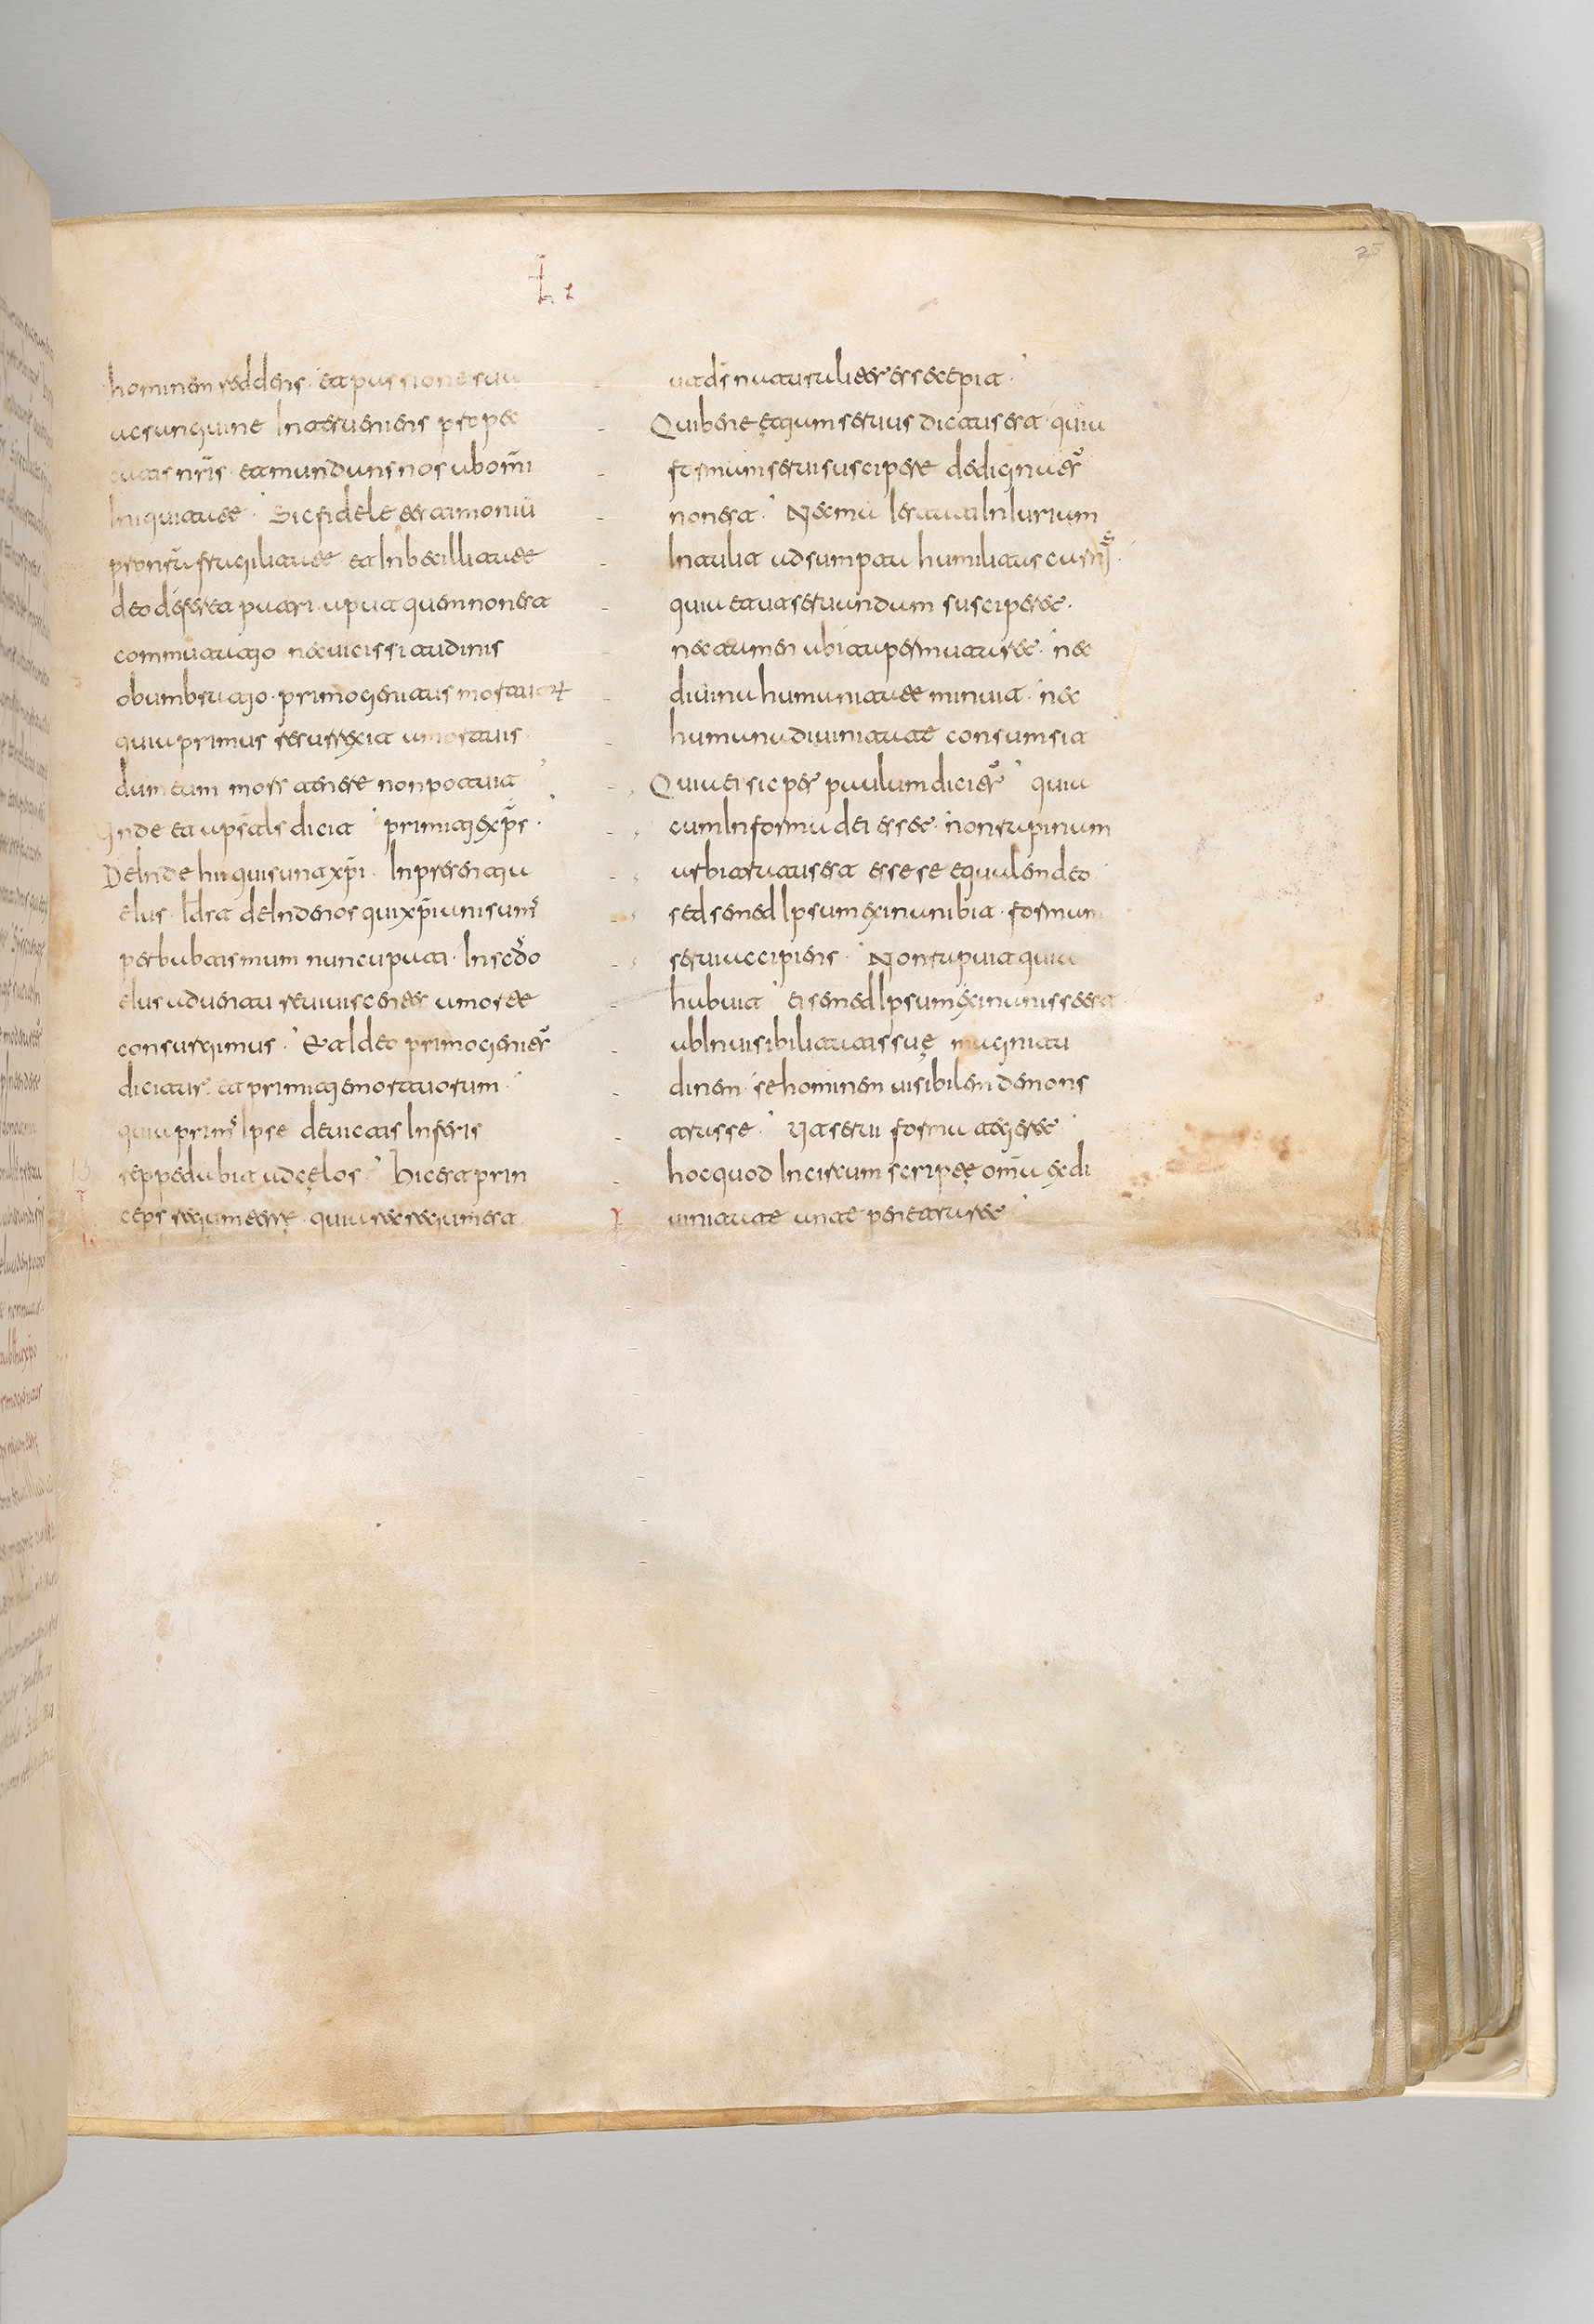 25
hominem reddens · et passione sua
ac sanguine interueniens pro pec
catis nr̄is · et mundans nos ab om̄i
iniquitate · Sic fidele testimoniū
pro nr̄a fragilitate et inbecillitate
deo dextera patri · apud quem non est
commutatio nec uicissitudinis
obumbratio · primogenitus mortuor
quia primus resurrexit a mortuis ·
dum eum mors tenere non potuit
Inde et apsl̄s dicit primitie xp̄s ·
Deinde hii qui sunt xp̄i · in presentia
eius · id est deinde nos qui xp̄iani sumˢ
per babtismum nuncupati · in scd̄o
eius aduentu reuiuiscentes a morte
consurgimus · Et ideo primogenitˢ
dicitur · et primitie mortuorum ·
quia primˢ ipse deuictis inferis
reppedabit ad cęlos · Hic est prin
ceps regum terrę · quia rex regum est
ds̄ naturaliter esse cepit ·
Qui bene etiam seruus dictus est · quia
formam serui suscipere dedignatˢ
non est · Nec maiestati iniuriam
intulit adsumpti humilitas carnis ·
quia et ut seruandum susciperet ·
nec tamen abitu permutaret · nec
diuina humanitate minuit · nec
humana diuinitate consumsit
Qui et sic per paulum dicitˢ quia
cum in forma dei esset · non rapinam
arbitratus est esse se equalem deo
sed semed ipsum exinanibit · formam
serui accipiens · Non rapuit quia
habuit · et semed ipsum exinanisse est
ab inuisibilitatis suę magnitu
dinem · se hominem uisibilem demons
trasse · Ut serui forma tegeret
hoc quod incircumscriptę om̄ia ex di
uinitate penetraret